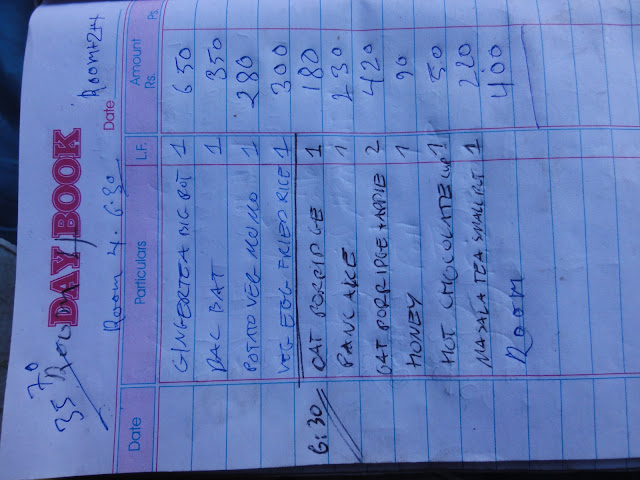 35 70
DAY BOOK
Room 4. 6:30 Date Room 2+4
Date Particulars L.F. Amount
Rs. Ps.
GINGER TEA BIG POT 1 650
DAL BAT 1 350
POTATO VEG MOMO 1 280
VEG EGG FRIED RICE 1 300
6:30 OAT PORRIDGE 1 180
PANCAKE 1 230
OAT PORRIDGE + APPLE 2 420
HONEY 1 90
HOT CHOCOLATE CUP 1 50
MASALA TEA SMALL POT 1 220
Room 400